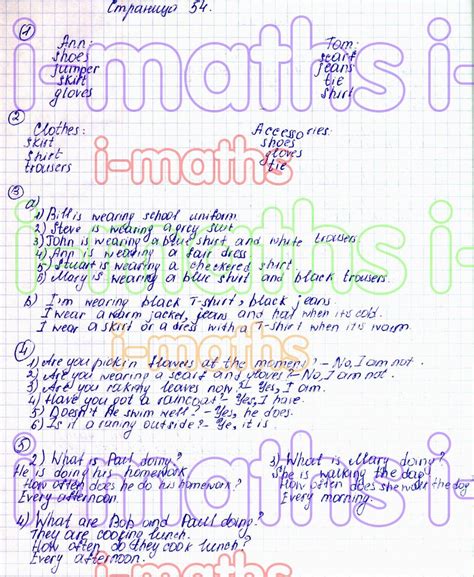 Страница 54.
1
Ann:
shoes
jumper
skirt
gloves
Tom:
scarf
jeans
tie
shirt
2
Clothes:
skirt
shirt
trousers
Accessories:
shoes
gloves
tie
3
a)
1) Bill is wearing school uniform
2) Steve is wearing a grey suit
3) John is wearing a blue shirt and white trousers
4) Ann is wearing a fair dress
5) Stuart is wearing a checkered shirt
6) Mary is wearing a blue shirt and black trousers.
b) I'm wearing black T-shirt, black jeans.
I wear a warm jacket, jeans and hat when its cold.
I wear a skirt or a dress with a T-shirt when it's warm.
4
1) Are you pickin flowers at the moment? – No, I am not.
2) Are you wearing a scarf and gloves? – No, I am not.
3) Are you raking leaves now? – Yes, I am.
4) Have you got a raincoat? – Yes, I have.
5) Doesn't He swim well? – Yes, he does.
6) Is it a raning outside? – Ye, it is.
5
2) What is Paul doing?
He is doing his homework.
How often does he do his homework?
Every afternoon.
3) What is Mary doing?
She is walking the dog.
How often does she walk the dog
Every morning.
4) What are Bob and Paul doing?
They are cooking lunch.
How often do they cook lunch?
Every afternoon.
i-maths i-
i-maths
i-maths i-
i-maths
i-maths i-
i-maths